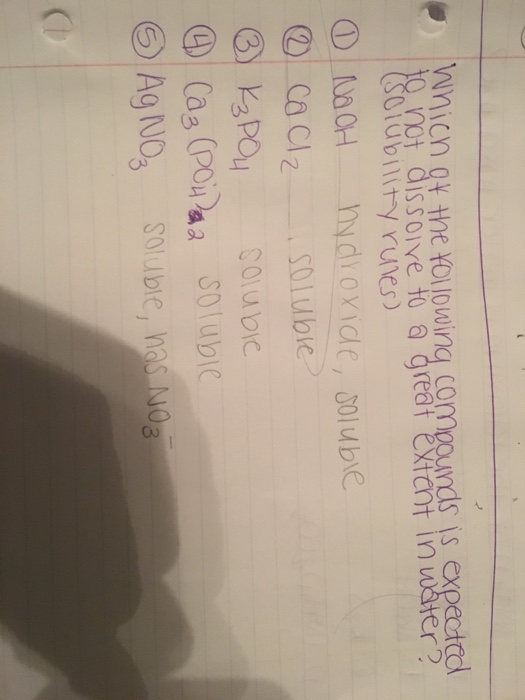 Which of the following compounds is expected
to not dissolve to a great extent in water?
(solubility rules)
① NaOH hydroxide, soluble
② CaCl₂ , soluble
③ K₃PO₄ soluble
④ Ca₃(PO₄)₂ soluble
⑤ AgNO₃ soluble, has NO₃⁻